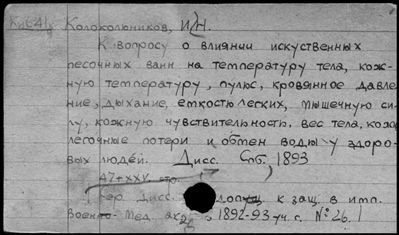 Колокольников, И.Н.
К вопросу о влиянии искуственных
песочных ванн на температуру тела, кож-
ную температуру, пульс, кровянное давле
ние, дыхание, емкость легких, мышечную си-
лу, кожную чувствительность, вес тела, кожно
легочные потери и обмен воды у здоро-
вых людей. Дисс. Спб., 1893
47+XXV стр.
Сер. Дисс. допущ. к защ. в имп.
Военно-Мед. ак. в 1892-93 уч. г. № 26.